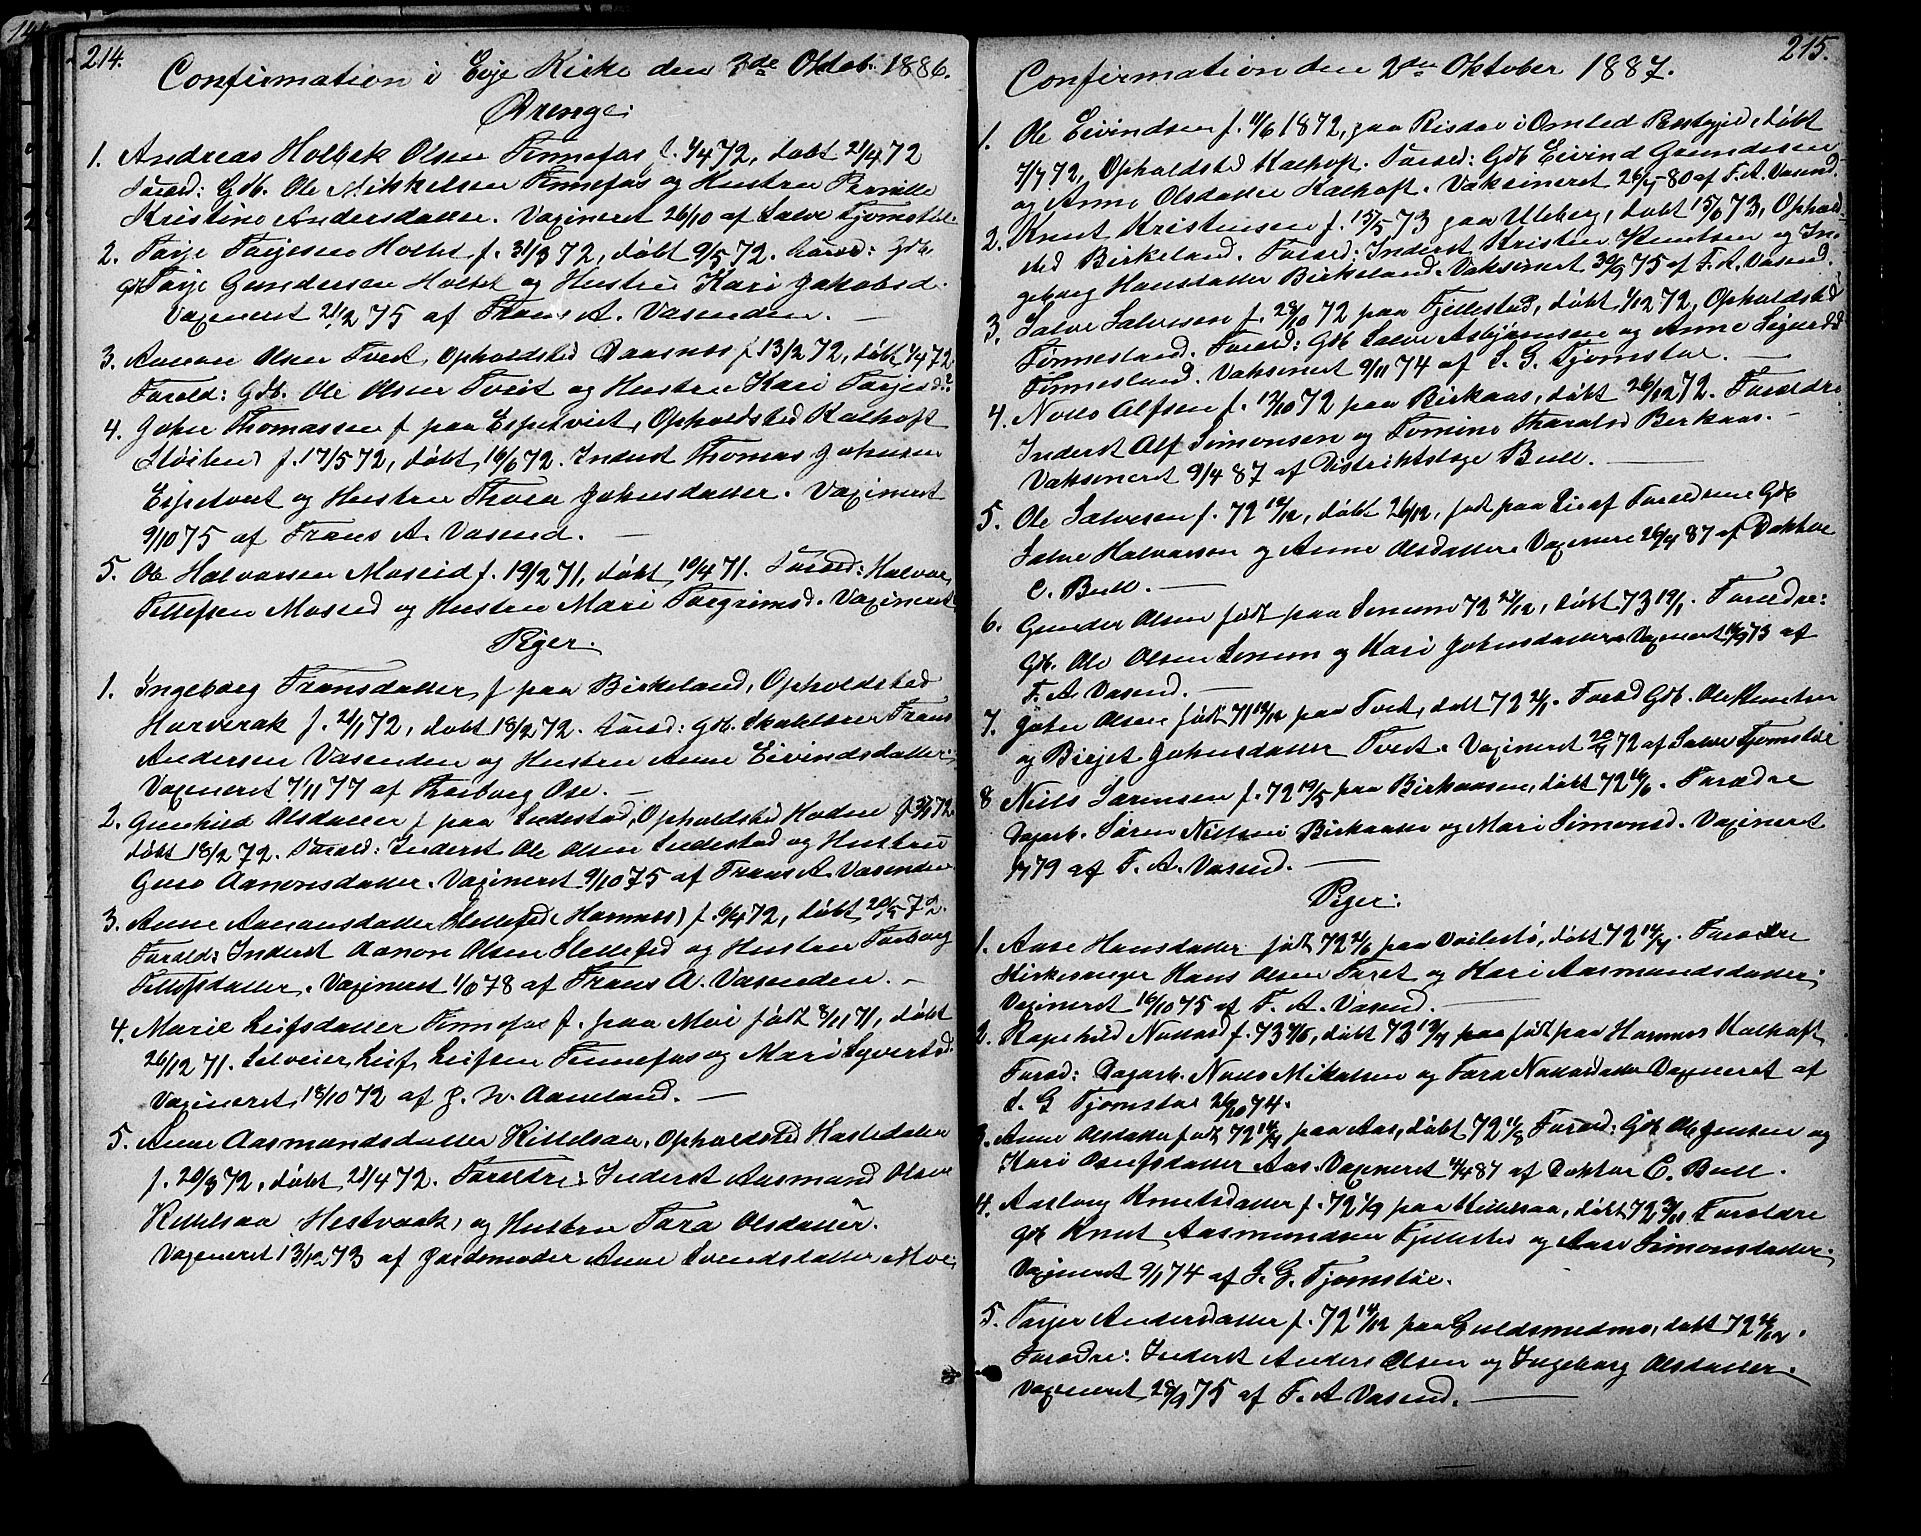 214.
Confirmation i Evje Kirke den 3de Oktob. 1886.
Drenge:
1. Andreas Holbek Olsen Finnefos f. 1/4 72, døbt 21/4 72
Foræld: Gdb. Ole Mikkelsen Finnefos og Hustru Pernille
Kristine Andersdatter. Vaxineret 26/10 af Salve Tjomstøl.
2. Tarje Tarjesen Holtet f. 31/3 72, døbt 9/5 72. Foræld: Gdb
Tarje Gundersen Holtet og Hustru Kari Jakobsd.
Vaxineret 21/2 75 af Frans A. Vasenden. —
3. Aanon Olsen Tveit, Opholdsted Daasnes f. 13/2 72, døbt 1/4 72
Foræld: Gdb. Ole Olsen Tveit og Hustru Kari Tarjesd.
4. John Thomassen f paa Espetveit, Opholdsted Kalhoft
f. 17/5 72, døbt 16/6 72. Inderst Thomas Johnsen
Espetveit og Hustru Thora Johnsdatter. Vaxineret
9/10 75 af Frans A. Vasend. —
5. Ole Halvorsen Moseid f. 19/2 71, døbt 10/4 71. Foræld: Halvor
Tellefsen Moseid og Hustru Mari Torgrimsd. Vaxineret
Piger.
1. Ingeborg Fransdatter f paa Birkeland, Opholdsted
Horverak f. 21/1 72, døbt 18/2 72. Foræld: Gdb. Skolelærer Frans
Andersen Vasenden og Hustru Anne Eivindsdatter.
Vaxineret 7/11 77 af Thorborg Ose. —
2. Gunhild Olsdatter f paa Lidestad, Opholdsted Hodne f. 3/1 72
døbt 18/2 72. Foræld: Inderst Ole Olsen Lidestad og Hustru
Guro Aanonsdatter. Vaxineret 9/10 75 af Frans A. Vasenden
3. Anne Aanonsdatter Hellefed (Homnes) f. 6/4 72, døbt 20/5 72.
Foræld: Inderst Aanon Olsen Hellefed og Hustru Torborg
Tellefsdatter. Vaxineret 1/10 78 af Frans A. Vasenden. —
4. Marie Leifsdatter Finnefos f. paa Moi født 8/11 71, døbt
26/12 71. Selveier Leif Leifsen Finnefos og Mari Syvertsd.
Vaxineret 18/10 72 af J. N. Aamland. —
5. Anne Aasmundsdatter Kittelsaa, Opholdsted Hasledalen
f. 20/3 72, døbt 21/4 72. Forældre: Inderst Aasmund Olsen
Kittelsaa, Hestvaak, og Hustru Tara Olsdatter.
Vaxineret 13/12 73 af Jordmoder Anne Svendsdatter Moe
215.
Confirmation den 2den Oktober 1887.
1. Ole Eivindsen f. 11/6 1872, paa Risdal i Omlid Prestgjeld, døbt
7/7 72, Opholdsted Kalhoft. Foræld: Gdb Eivind Gundersen
og Anne Olsdatter Kalhoft. Vaksineret 26/5-80 af F. A. Vasend.
2. Knut Kristensen f. 15/5 73 paa Uleberg, døbt 15/6 73, Ophold-
sted Birkeland. Foræld: Inderst Kristen Knutsen og In-
geborg Hansdatter Birkeland. Vaksineret 30/9 75 af F. A. Vasend.
3. Salve Salvesen f. 28/10 72 paa Fjellestad, døbt 1/12 72, Opholdsted
Tønnesland. Foræld: Gdb Salve Asbjørnsen og Anne Sigurdsd
Tønnesland. Vaksineret 9/11 74 af S. G. Tjomstøl. —
4. Nolls Alfsen f. 13/10 72 paa Birkaas, døbt 26/12 72. Forældre
Inderst Alf Simonsen og Tomine Tharalds Berkaas. —
Vaksineret 9/4 87 af Distriktslæge Bull. —
5. Ole Salvesen f. 72 12/12, døbt 26/12, født paa Lie af Forældrene Gdb
Salve Halvorson og Anne Olsdatter Vaxinere 26/4 87 af Doktor
C. Bull. —
6. Gunder Olsen født paa Senum 72 24/12, døbt 73 19/1. Forældre:
Gdb. Ole Olsen Senum og Kari Johnsdatter Vaxineret 14/9 73 af
F. A. Vasend. —
7. John Olsen født 71 12/12 paa Tveit, døbt 72 21/1. Foræld Gdb. Ole Knutsen
og Birjet Johnsdatter Tveit. Vaxineret 20/4 72 af Salve Tjomstøl
8 Niels Sørensen f. 72 19/5 paa Birkaasen, døbt 72 16/6. Forældre
Dagarb. Søren Nielsen Birkaasen og Mari Simonsd. Vaxineret
79 af F. A. Vasend. —
Piger:
1. Aase Hansdatter født 72 21/6 paa Voilestø, døbt 72 14/7. Forældre
Kirkesanger Hans Olsen Faret og Kari Aasmundsdatter.
Vaxineret 16/10 75 af F. A. Vasend. —
2. Ragnhild Nollsd f. 73 7/6, døbt 73 13/7 paa født paa Homnes Kalhoft,
Foræld: Dagarb. Nolls Mikalsen og Tara Nollsdatter Vaxineret af
S. G Tjomstøl 26/10 74.
3. Anne Olsdatter født 72 14/7 paa Aas, døbt 72 11/8 Foræld: Gdb Ole Jensen og
Kari Osufsdatter Aas. Vaxineret 14/4 87 af Doktor C. Bull.
4. Aasborg Knutsdatter f. 72 1/9 paa Kittelsaa, døbt 72 3/11. Forældre
Gdb Knut Aasmundsen Fjellested og Aase Simonsdatter.
Vaxineret 9/1 74 af S. G. Tjomstøl.
5. Tarjer Andersdatter f. 72 14/12 paa Guldsmedmo, døbt 72 26/12.
Forældre: Inderst Anders Olsen og Ingeborg Olsdatter.
Vaxineret 28/9 75 af F. A Vasend. —